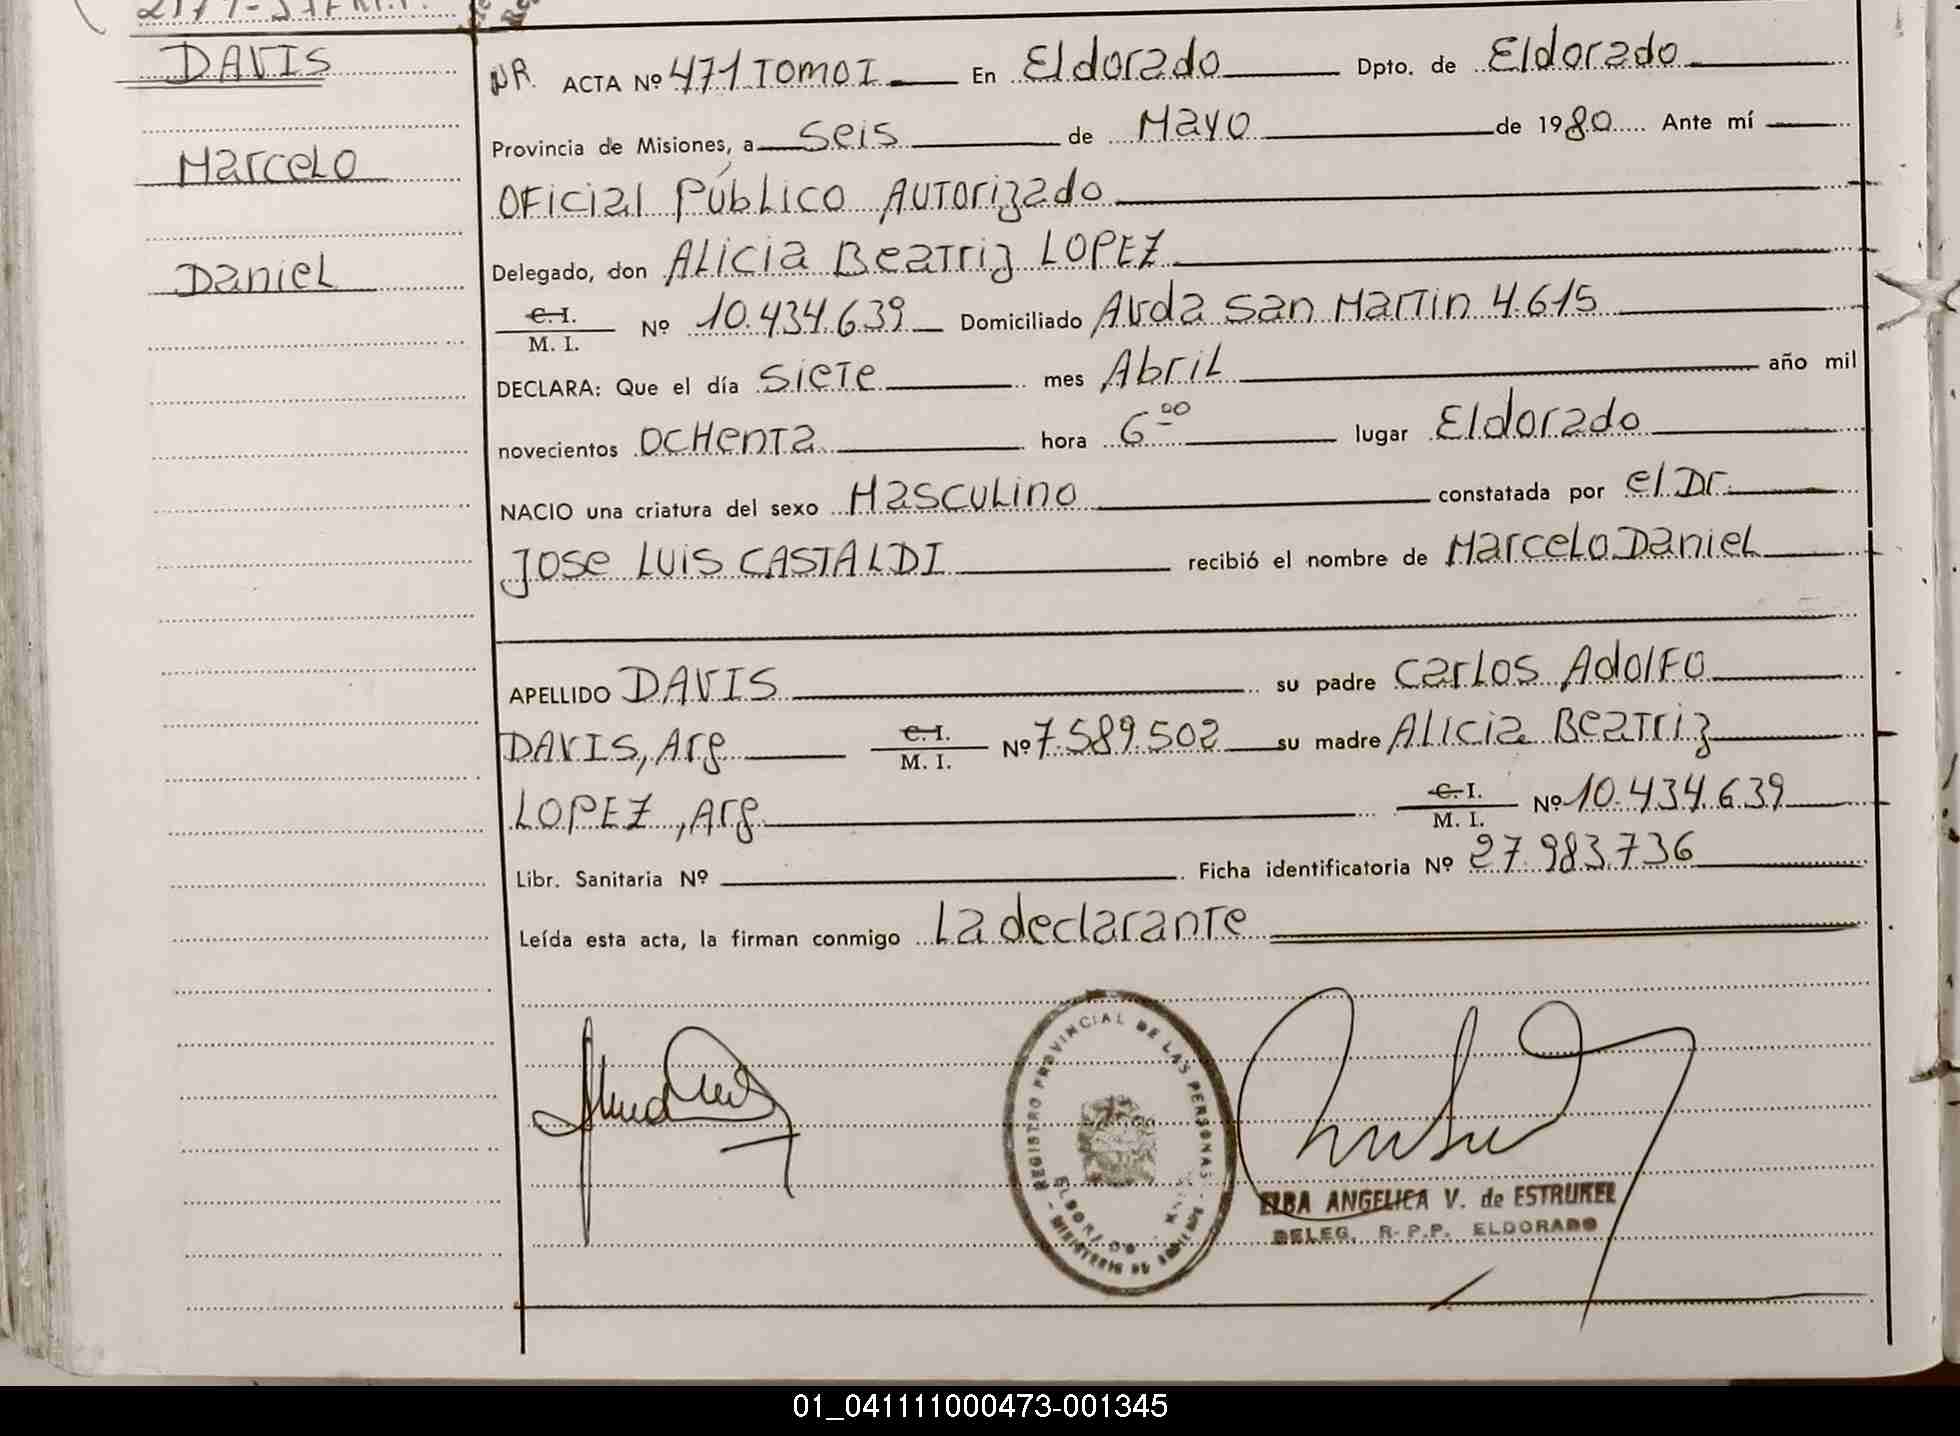 DAVIS
Marcelo
Daniel
NR. ACTA Nº 471 Tomo I En Eldorado Dpto. de Eldorado
Provincia de Misiones, a Seis de Mayo de 1980 Ante mí
Oficial Público Autorizado
Delegado, don Alicia Beatriz LOPEZ
C. I.
M. I. Nº 10.434.639 Domiciliado Avda San Martin 4.615
DECLARA: Que el día Siete mes Abril año mil
novecientos Ochenta hora 6 00 lugar Eldorado
NACIO una criatura del sexo Masculino constatada por el Dr.
Jose Luis CASTALDI recibió el nombre de Marcelo Daniel
APELLIDO DAVIS su padre Carlos Adolfo
DAVIS, Arg C. I. M. I. Nº 7.589.502 su madre Alicia Beatriz
LOPEZ, Arg. C. I. M. I. Nº 10.434.639
Libr. Sanitaria Nº Ficha identificatoria Nº 27.983.736
Leída esta acta, la firman conmigo La declarante
REGISTRO PROVINCIAL DE LAS PERSONAS
ELDORADO
ELBA ANGELICA V. de ESTRUKEL
DELEG. R.P.P. ELDORADO
01_041111000473-001345